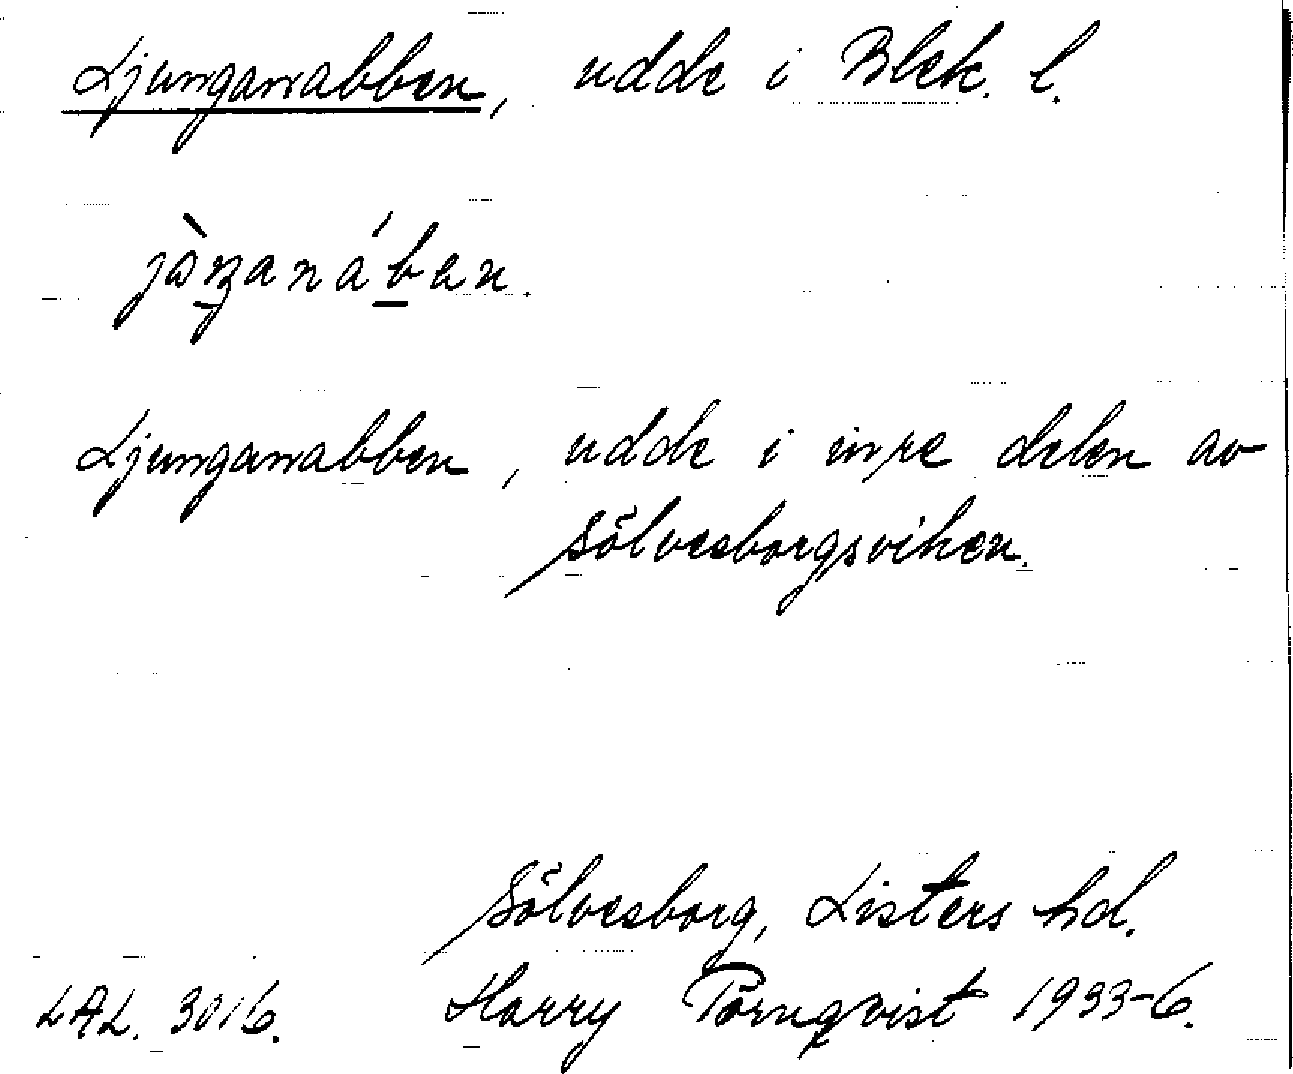 Ljunganabben, udde i Blek. l.
jòŋanáben.
Ljunganabben, udde i inre delen av
Sölvesborgsviken.
Sölvesborg, Listers hd.
LAL. 3016. Harry Törnqvist 1933-6.